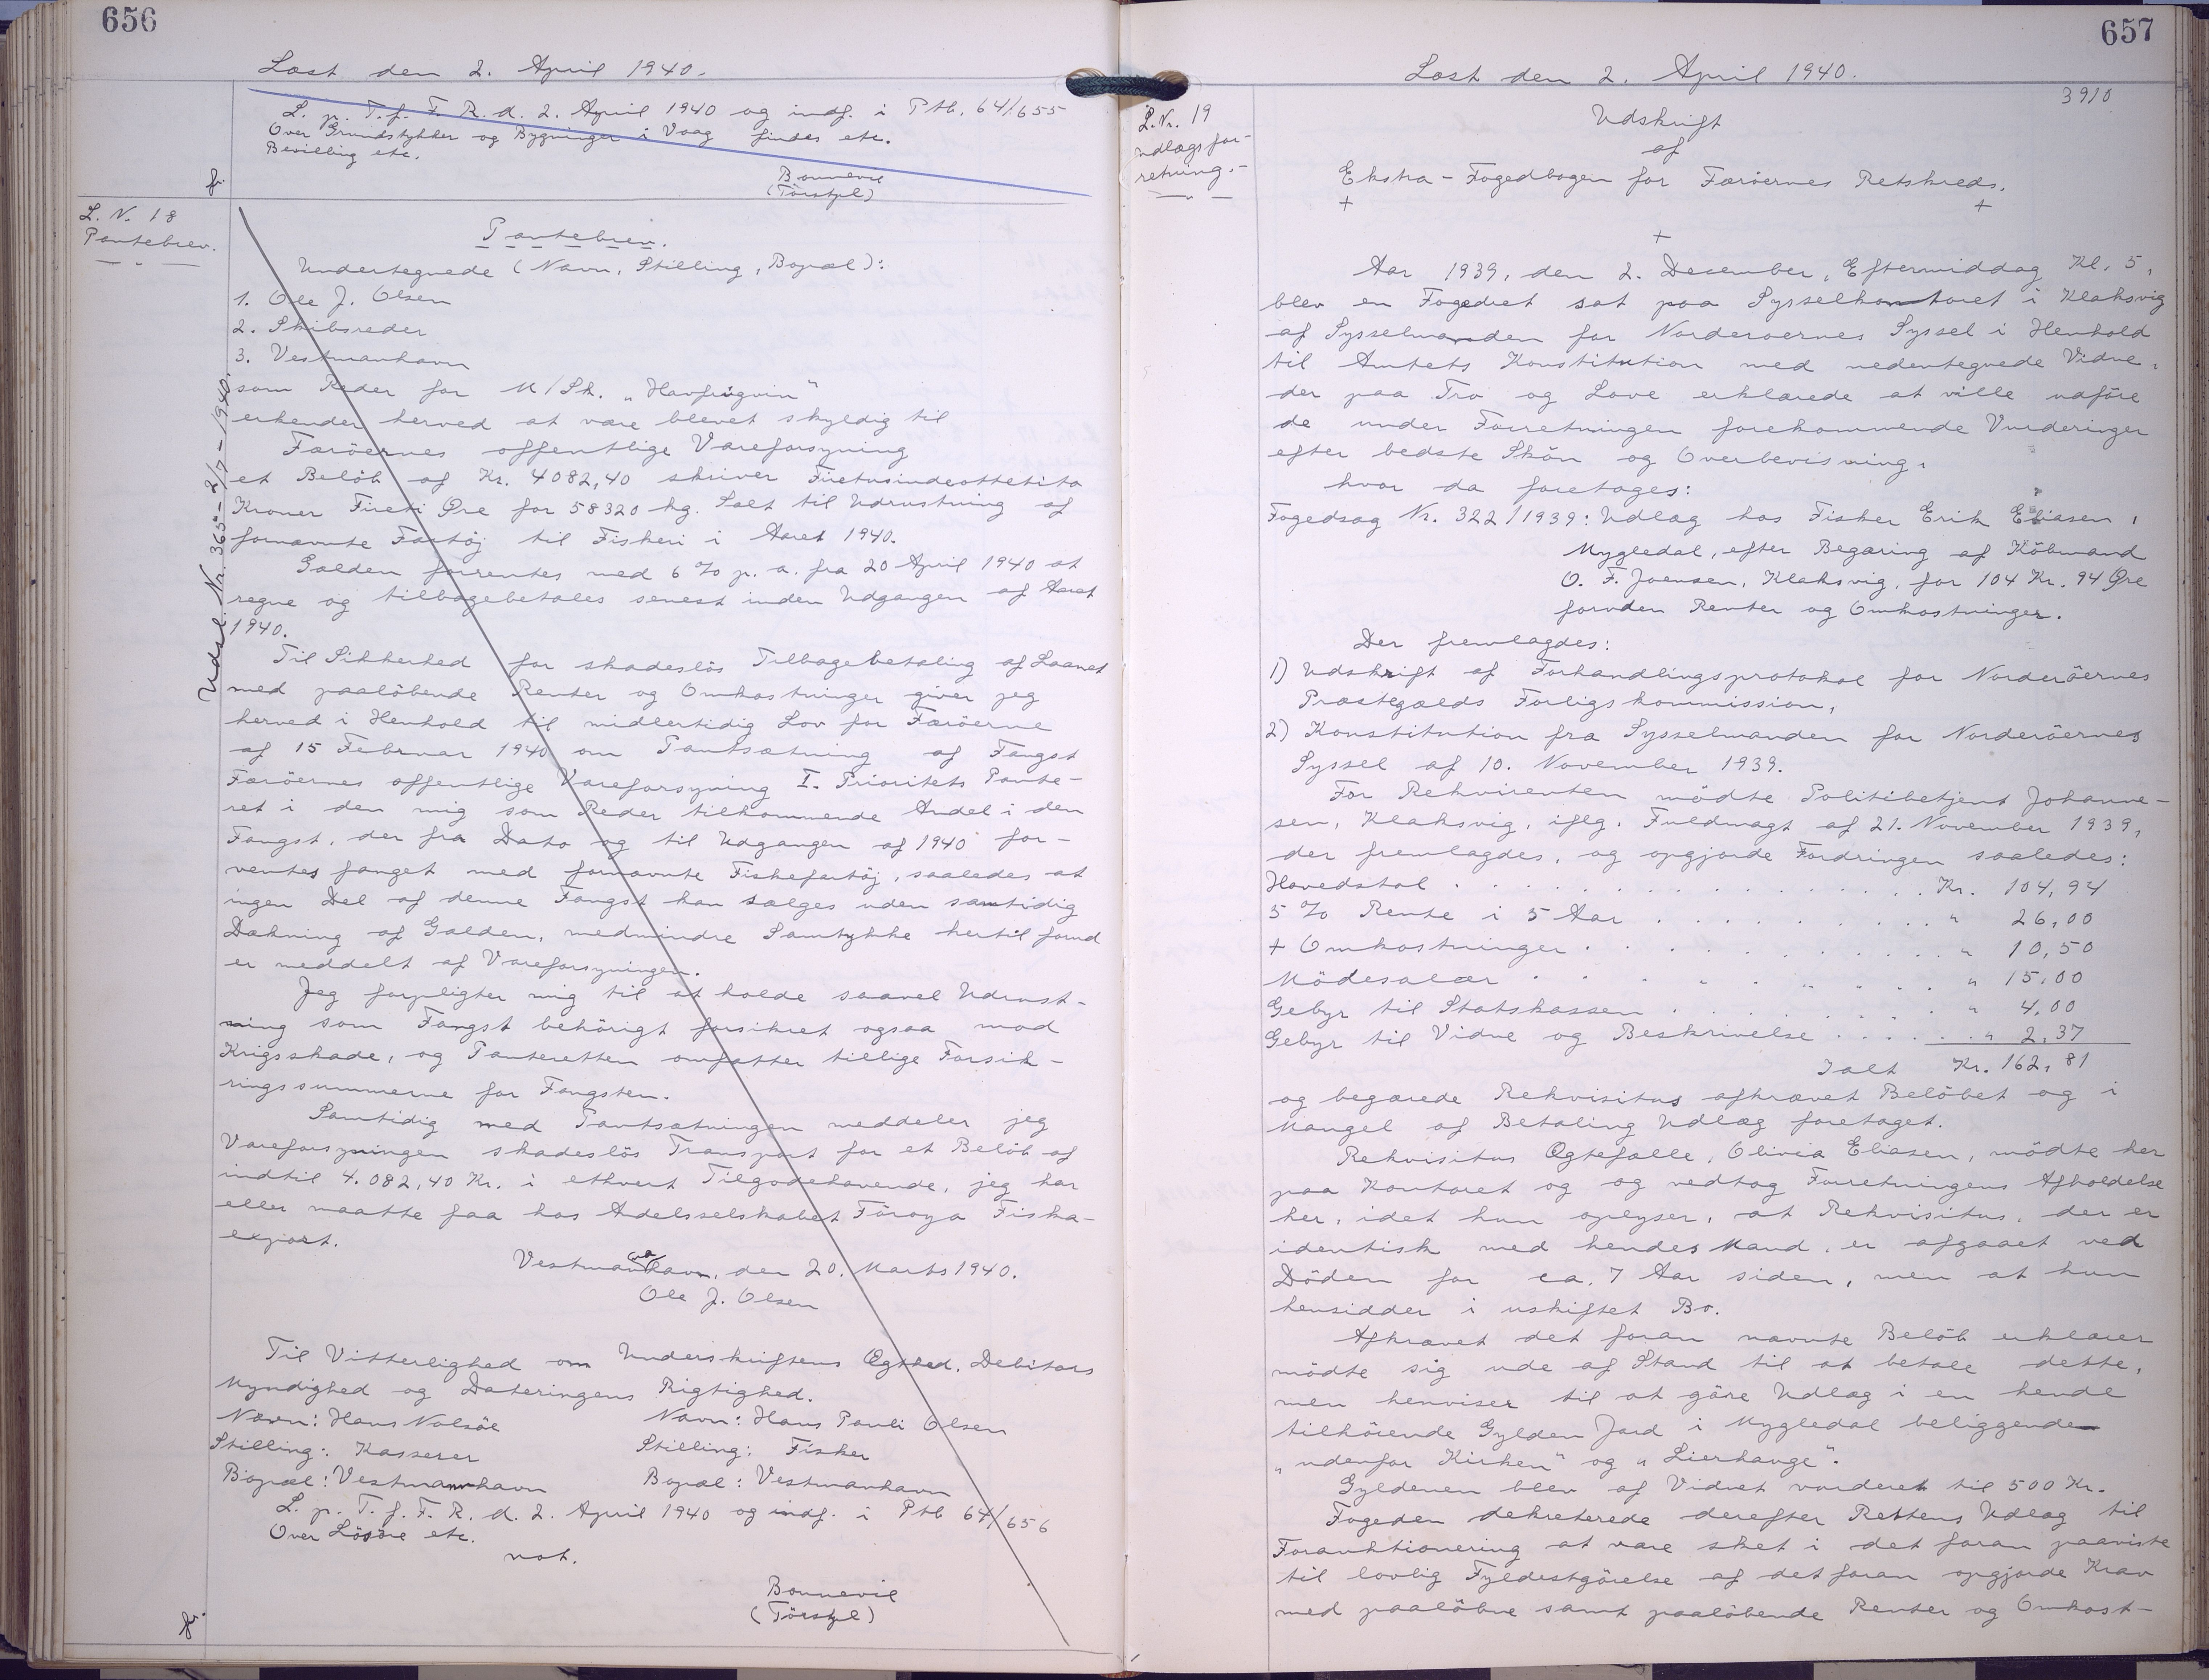 656
Læst den 2. April 1940.
L. p. T. f. F. R. d. 2. April 1940 og indf. i Ptb. 64/655
Over Grundstykker og Bygninger i Vaag findes etc.
Bevilling etc.
Bonnevie
(Törsleff)
fr.
L. N. 18
Pantebrev.
Udsl. Nr. 365 - 2/7 - 1940.
Pantebrev.
Undertegnede (Navn, Stilling, Bopæl):
1. Ole J. Olsen
2. Skibsreder
3. Vestmanhavn
som Reder for M/Sk. "Havfrugvin"
erkender herved at være blevet skyldig til
Færöernes offentlige Vareforsyning
et Belöb af Kr. 4082,40 skriver Firetusindeottetito
Kroner Fireti Øre for 58320 kg. Salt til Udrustning af
fornævnte Fartöj til Fiskeri i Aaret 1940.
Gælden forrentes med 6 % p. a. fra 20 April 1940 at
regne og tilbagebetales senest inden Udgangen af Aaret
1940.
Til Sikkerhed for skadeslös Tilbagebetaling af Laanet
med paalöbende Renter og Omkostninger giver jeg
herved i Henhold til midlertidig Lov for Færöerne
af 15 Februar 1940 om Pantsætning af Fangst
Færöernes offentlige Vareforsyning I. Prioritets Pante-
ret i den mig som Reder tilkommende Andel i den
Fangst, der fra Dato og til Udgangen af 1940 for-
ventes fanget med fornævnte Fiskefartöj, saaledes at
ingen Del af denne Fangst kan sælges uden samtidig
Dækning af Gælden, medmindre Samtykke hertil forud
er meddelt af Vareforsyningen.
Jeg forpligter mig til at holde saavel Udrust-
ning som Fangst behörigt forsikret ogsaa mod
Krigsskade, og Panteretten omfatter tillige Forsik-
ringssummerne for Fangsten.
Samtidig med Pantsætningen meddeler jeg
Vareforsyningen skadeslös Transport for et Belöb af
indtil 4.082,40 Kr. i ethvert Tilgodehavende, jeg har
eller maatte faa hos Adelsselskabet Föroya Fiska-
export.
Vestmanhavn, den 20. Marts 1940.
Ole J. Olsen
Til Vitterlighed om Underskriftens Ægthed, Debitors
Myndighed og Dateringens Rigtighed.
Navn: Hans Nolsöe Navn: Hans Pauli Olsen
Stilling: Kasserer Stilling: Fisker
Bopæl: Vestmannhavn Bopæl: Vestmanhavn
L. p. T. f. F. R. d. 2. April 1940 og indf. i Ptb 64/656
Over Lösöre etc.
not.
Bonnevie
(Törsleff)
fr.
657
Læst den 2. April 1940.
3910
L. Nr. 19
Udlægsfor-
retning.
Udskrift
af
Ekstra-Fogedbogen for Færöernes Retskreds.
+ +
+
Aar 1939, den 2. December, Eftermiddag Kl. 5,
blev en Fogedret sat paa Sysselkontoret i Klaksvig
af Sysselmanden for Norderoernes Syssel i Henhold
til Amtets Konstitution med nedentegnede Vidne,
der paa Tro og Love erklærede at ville udföre
de under Forretningen forekommende Vurderinger
efter bedste Skön og Overbevisning,
hvor da foretages:
Fogedsag Nr. 322/1939: Udlæg hos Fisker Erik Eliasen,
Mygledal, efter Begæring af Köbmand
O. F. Joensen, Klaksvig, for 104 Kr. 94 Øre
foruden Renter og Omkostninger.
Der fremlagdes:
1) Udskrift af Forhandlingsprotokol for Norderöernes
Præstegælds Forligskommission,
2) Konstitution fra Sysselmanden for Norderöernes
Syssel af 10. November 1939.
For Rekvirenten mödte Politibetjent Johanne-
sen, Klaksvig, iflg. Fuldmagt af 21. November 1939,
der fremlagdes, og opgjorde Fordringen saaledes:
Hovedstol . . . . . Kr. 104,94
5 % Rente i 5 Aar . . . . . " 26,00
+ Omkostninger . . . . . " 10,50
Mödesalær . . . . . " 15,00
Gebyr til Statskassen . . . . . " 4,00
Gebyr til Vidne og Beskrivelse . . . . . " 2,37
Ialt Kr. 162,81
og begærede Rekvisitus afkrævet Belöbet og i
Mangel af Betaling Udlæg foretaget.
Rekvisitus Ægtefælle, Olivia Eliasen, mödte her
paa Kontoret og og vedtog Forretningens Afholdelse
her, idet hun oplyser, at Rekvisitus, der er
identisk med hendes Mand, er afgaaet ved
Döden for ca. 7 Aar siden, men at hun
hensidder i uskiftet Bo.
Afkrævet det foran nævnte Belöb erklærer
mödte sig ude af Stand til at betale dette,
men henviser til at göre Udlæg i en hende
tilhörende Gylden Jord i Mygledal beliggende
"udenfor Kirken" og "Lierhauge".
Gyldenen blev af Vidnet vurderet til 500 Kr.
Fogeden dekreterede derefter Rettens Udlæg til
Foranktionering at være sket i det foran paaviste
til lovlig Fyldestgörelse af det foran opgjorde Krav
med paalöbne samt paalöbende Renter og Omkost-